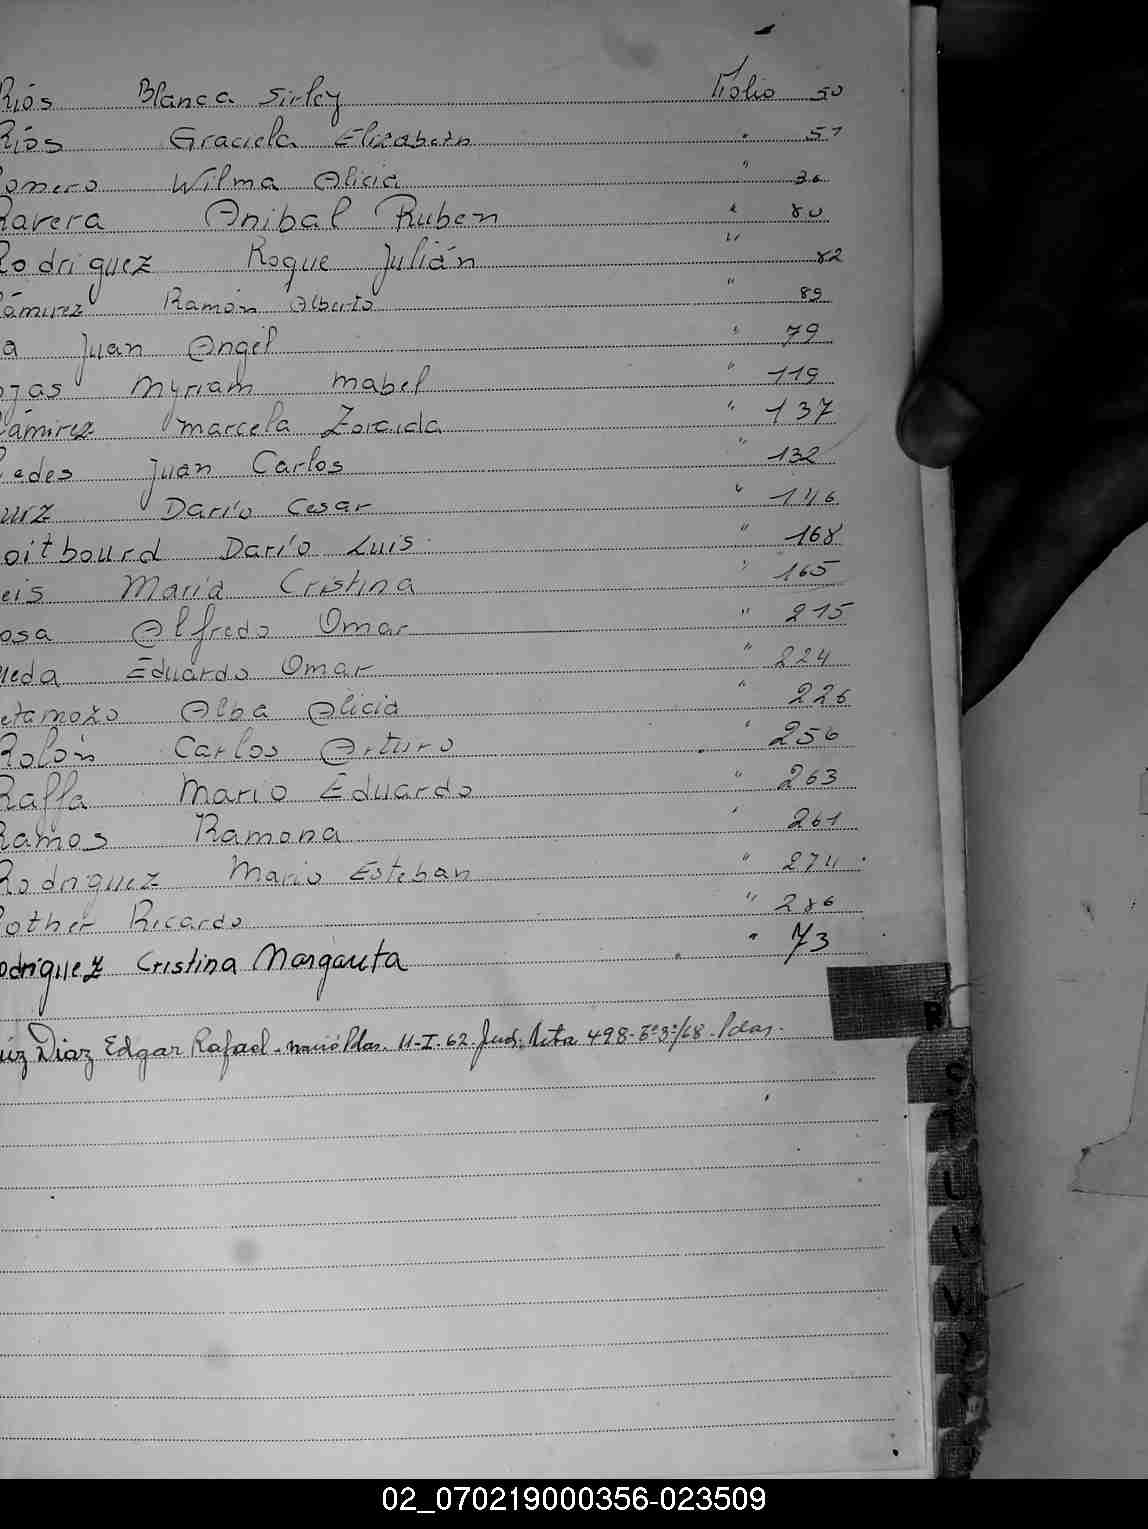 Riós Blanca Sirley Folio 50
Riós Graciela Elizabeth " 51
Romero Wilma Alicia " 36
Ravera Anibal Ruben " 80
Rodriguez Roque Julián " 82
Rámirez Ramón Alberto " 89
a Juan Angel " 79
ojas Myriam Mabel " 119
Rámirez Marcela Zoraida " 137
edes Juan Carlos " 132
urz Darío Cesar " 146
oitbourd Darío Luis " 168
eis María Cristina " 165
osa Alfredo Omar " 215
ueda Eduardo Omar " 224
etamozo Alba Alicia " 226
Rolón Carlos Arturo " 256
Raffa Mario Eduardo " 263
Ramos Ramona " 261
Rodriguez Mario Esteban " 274
Rother Ricardo " 286
odriguez Cristina Margarita " 73
uiz Diaz Edgar Rafael - nació Pdas. 11-I-62. Jud. Acta 498-Tº3º/68-Pdas.
R
S
T
U
V
02_070219000356-023509